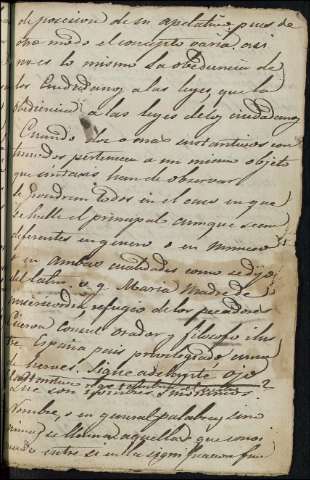 de posicion de su apelativo, pues de
otro modo el concepto varia. asi
no es lo mismo la obediencia de
los Ciudadanos a las leyes, que la
obediencia a las leyes de los ciudadanos
Cuando dos o mas sustantivos con
tinuados pertenecen a un mismo objeto
que sintacsis han de observar
Se pondran todos en el caso en que
se halle el principal aunque sean
diferentes en genero o en numero
o en ambas cualidades como se dijo
del latin v. g. Maria Madre de
misericordia, refugio de los pecadores
Ciceron Consul orador y filosofo ilus
tre. España pais privilegiado
heroes. Sigue adelante
Que son sinonimos
Nombre, o en general palabras sino
nimas se llaman aquellas que convi
niendo entre si en la significacion